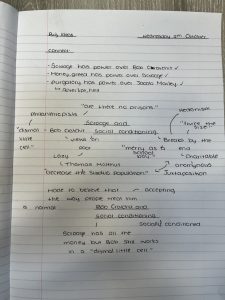 Big Ideas Wednesday 2nd October
Context
- Scrooge has power over Bob Cratchit ✓
- Money, greed has power over Scrooge ✓
- purgatory has power over Jacob Marley ✓
"are there no prisons"
philanthropists Scrooge and hedonism
"dismal Bob Cratchit Social conditioning "twice the
little views or Breaks by the size"
cell" poor "merry as a school boy" end
Lazy Charitable
Thomas Malthus anonymous
"decrease the surplus population" Juxtaposition
made to believe that accepting
the way people treat him
is normal Bob Cratchit and
social conditioning
Socially conditioned
Scrooge has all the
money but Bob still works
in a "dismal little cell"